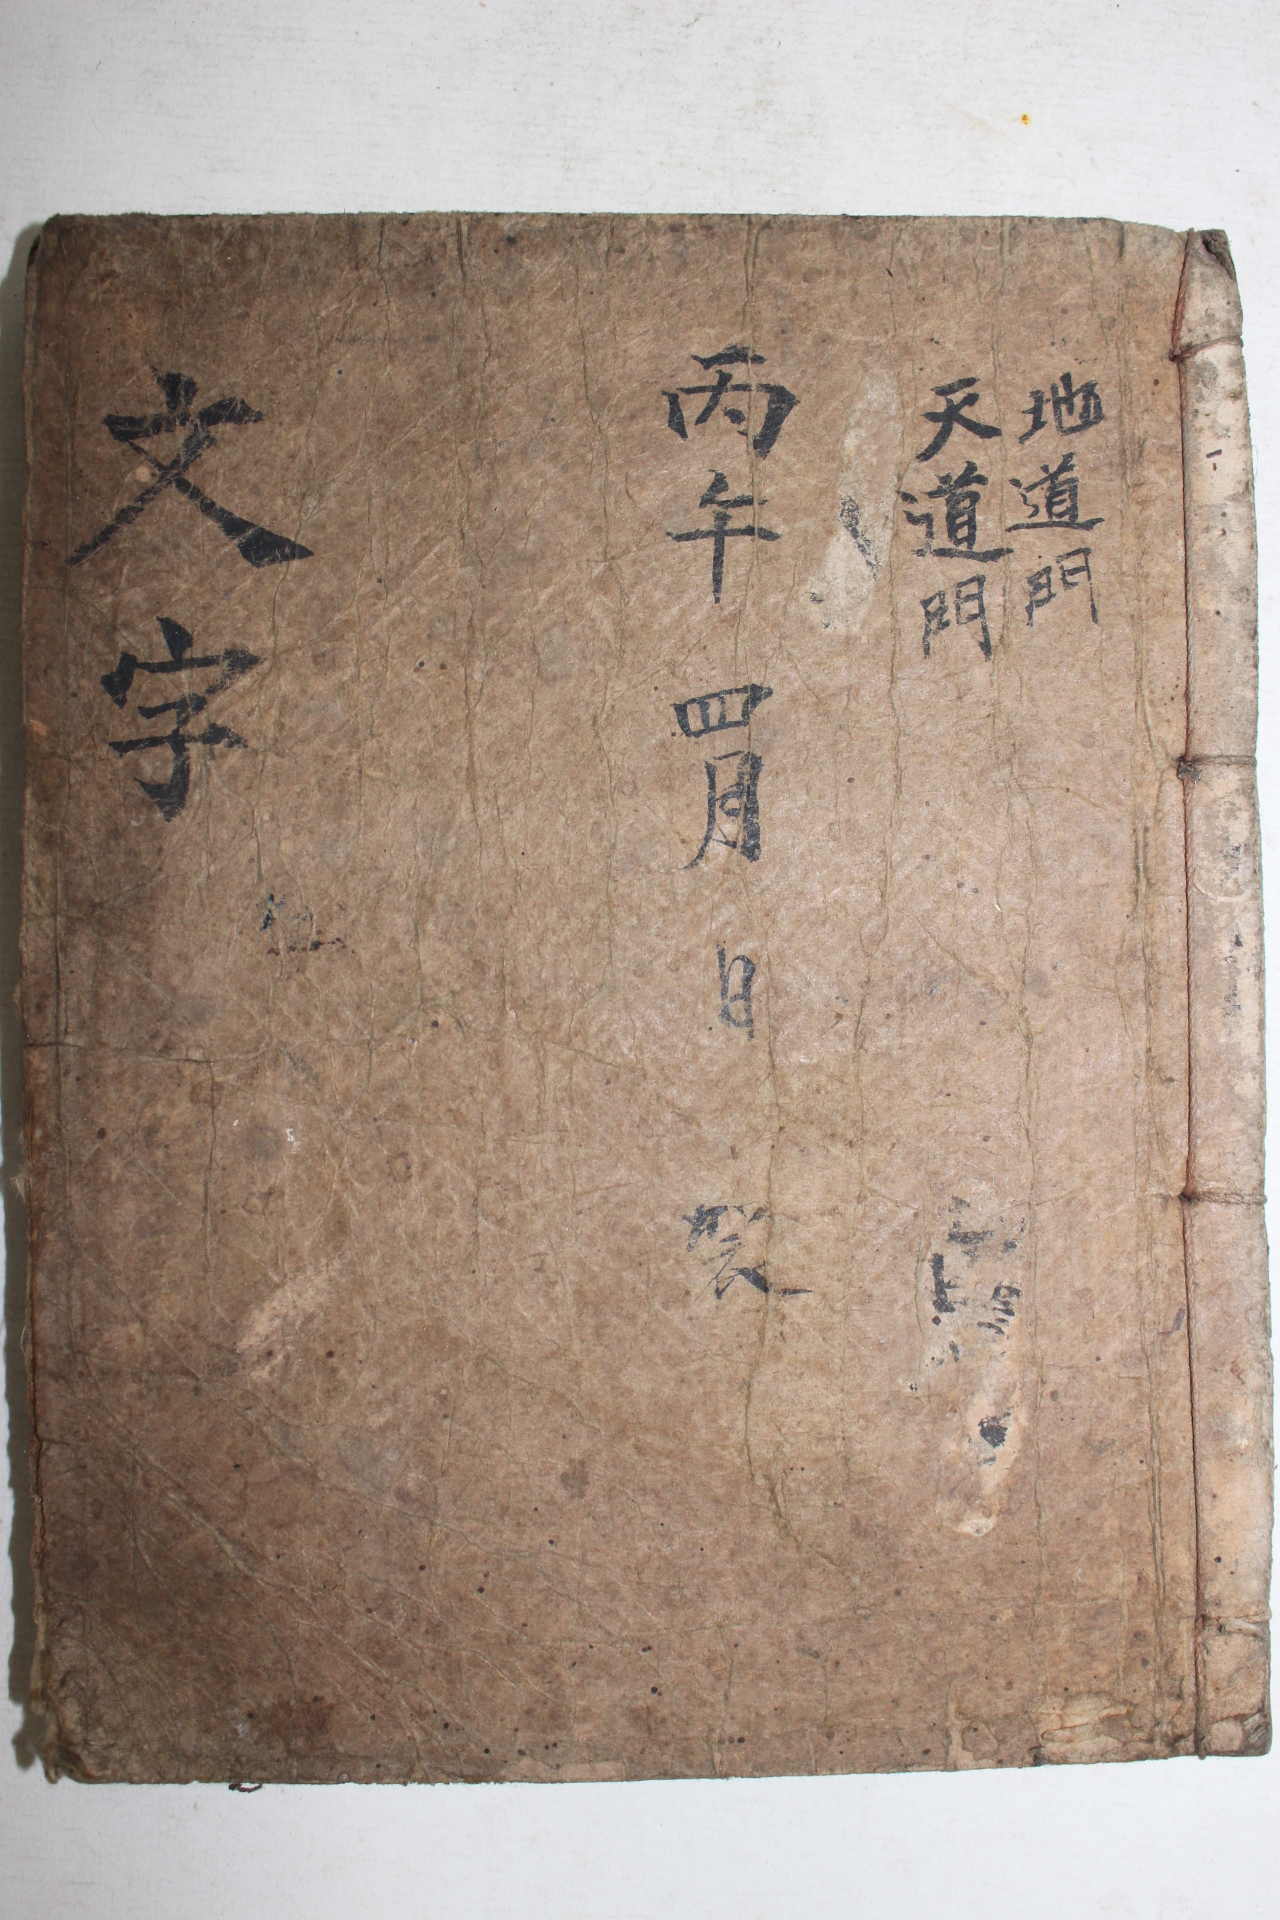 地道門
天道門
丙午四月 日
文字